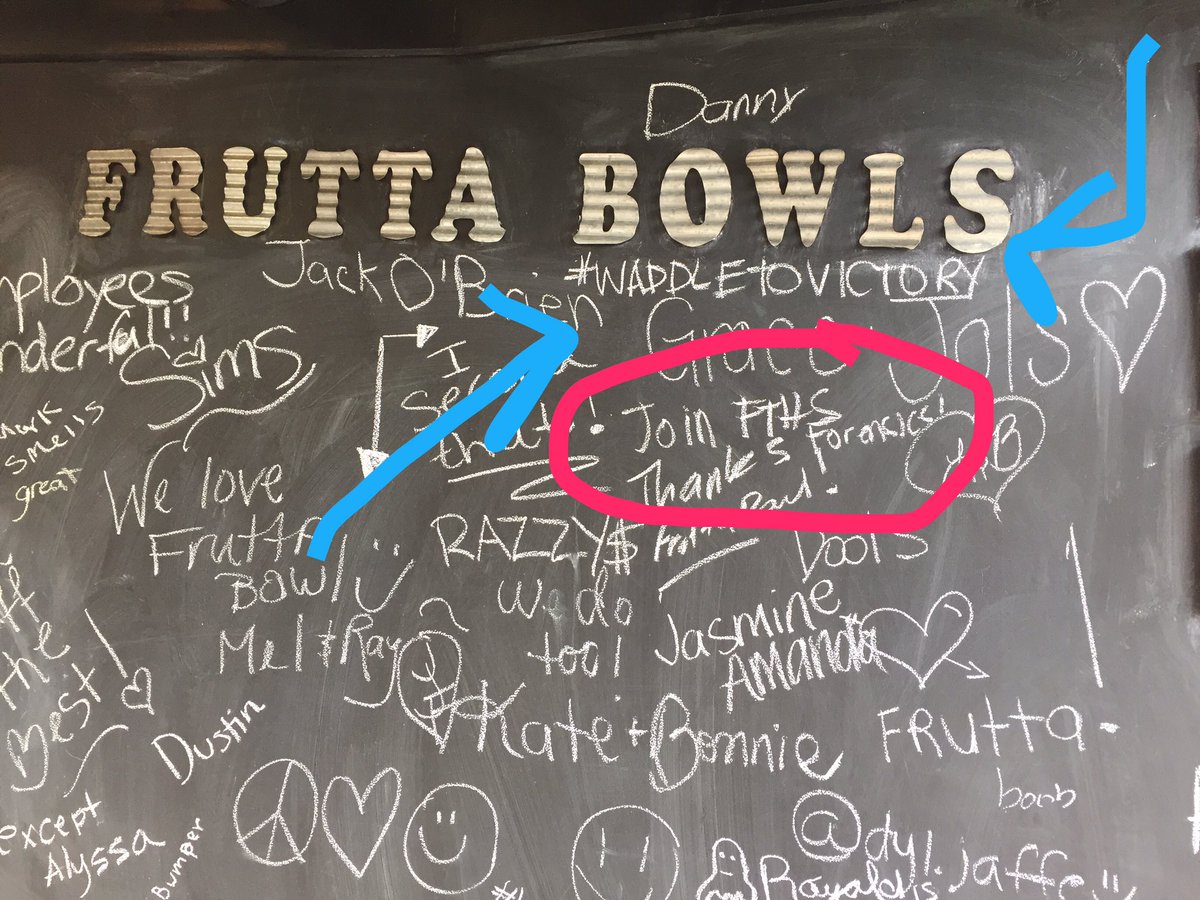 Danny
FRUTTA BOWLS
Jack O'Brien
#WADDLEtoVICTORY
mployees
nderful!!
Sims
Grace
Jols
I
thats!
Join FTHS
Forensics!
Thanks
mark
smells
great
We love
Frutta
BOWL
Mel & Ray
RAZZY$
We do
too!
Jasmine
Amanda
ff
the
Best!
Dustin
Kate + Bonnie
FRutta.
boob
except
Alyssa
Bumper
@dyl.jaffe!!
#